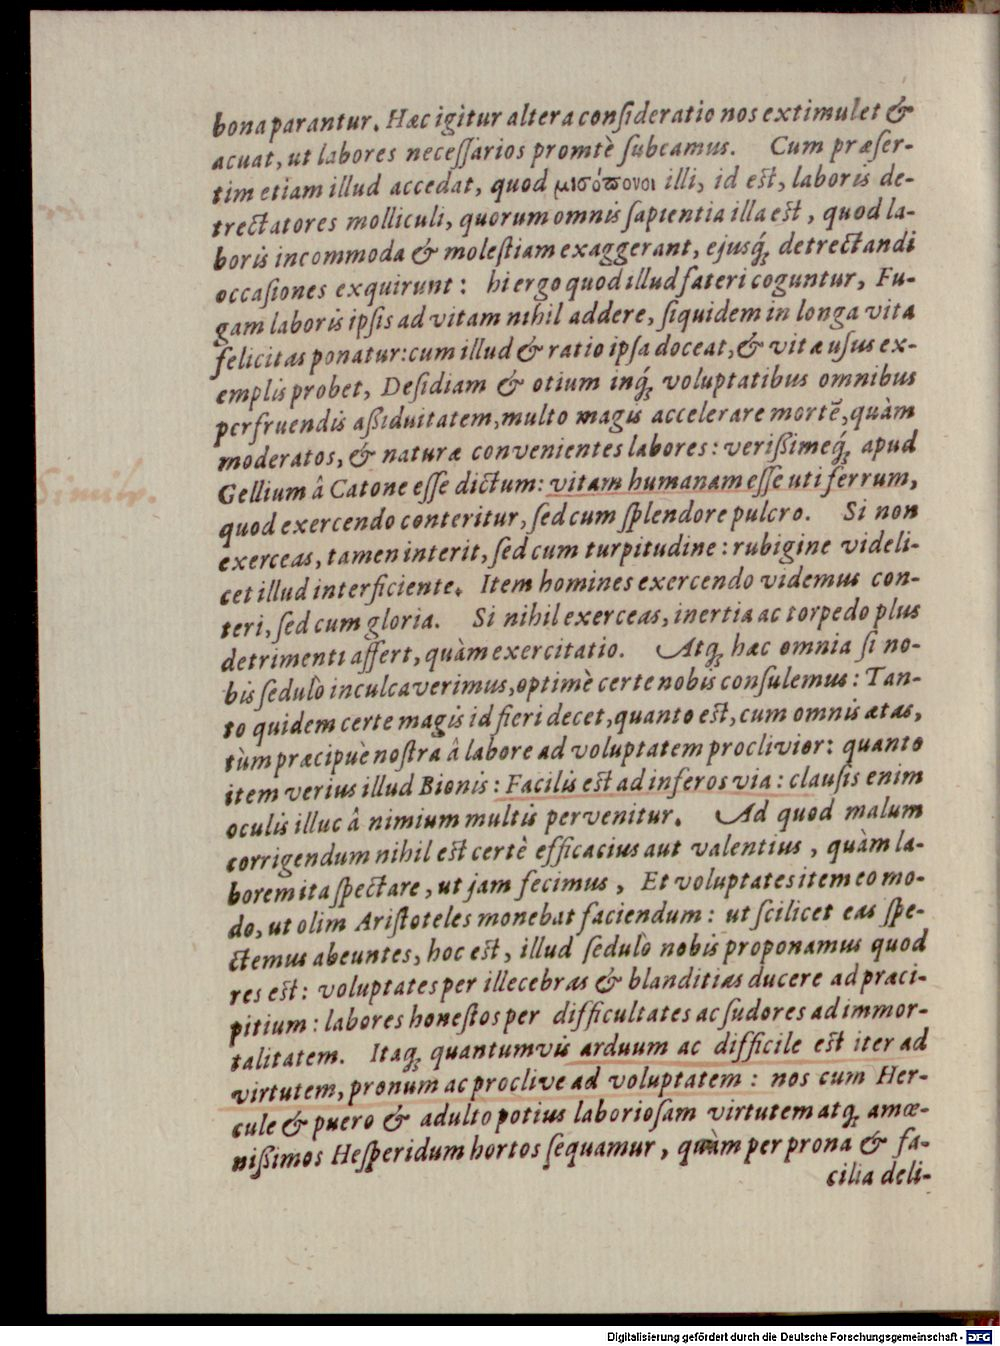 bona parantur. Hæc igitur altera consideratio nos extimulet &
acuat, ut labores necessarios promtè subeamus. Cum præser-
tim etiam illud accedat, quod μισόπονοι illi, id est, laboris de-
trectatores molliculi, quorum omnis sapientia illa est, quod la-
boris incommoda & molestiam exaggerant, ejusq́; detrectandi
occasiones exquirunt: hi ergo quod illud fateri coguntur, Fu-
gam laboris ipsis ad vitam nihil addere, siquidem in longa vita
felicitas ponatur: cum illud & ratio ipsa doceat, & vitæ usus ex-
emplis probet, Desidiam & otium inq́; voluptatibus omnibus
perfruendis aßiduitatem, multo magis accelerare mortē, quàm
moderatos, & naturæ convenientes labores: verißimeq́; apud
Gellium â Catone esse dictum: vitam humanam esse uti ferrum,
quod exercendo conteritur, sed cum splendore pulcro. Si non
exerceas, tamen interit, sed cum turpitudine: rubigine videli-
cet illud interficiente. Item homines exercendo videmus con-
teri, sed cum gloria. Si nihil exerceas, inertia ac torpedo plus
detrimenti affert, quàm exercitatio. Atq; hæc omnia si no-
bis sedulò inculcaverimus, optimè certe nobis consulemus: Tan-
to quidem certe magis id fieri decet, quanto est, cum omnis ætas,
tùm præcipuè nostra â labore ad voluptatem proclivior: quanto
item verius illud Bionis: Facilis est ad inferos via: clausis enim
oculis illuc â nimium multis pervenitur. Ad quod malum
corrigendum nihil est certè efficacius aut valentius, quàm la-
borem ita spectare, ut jam fecimus, Et voluptates item eo mo-
do, ut olim Aristoteles monebat faciendum: ut scilicet eas spe-
ctemus abeuntes, hoc est, illud sedulò nobis proponamus quod
res est: voluptates per illecebras & blanditias ducere ad præci-
pitium: labores honestos per difficultates ac sudores ad immor-
talitatem. Itaq; quantumvis arduum ac difficile est iter ad
virtutem, pronum ac proclive ad voluptatem: nos cum Her-
cule & puero & adulto potius laboriosam virtutem atq; amœ-
nißimos Hesperidum hortos sequamur, quàm per prona & fa-
cilia deli-
Simile.
Digitalisierung gefördert durch die Deutsche Forschungsgemeinschaft - DFG